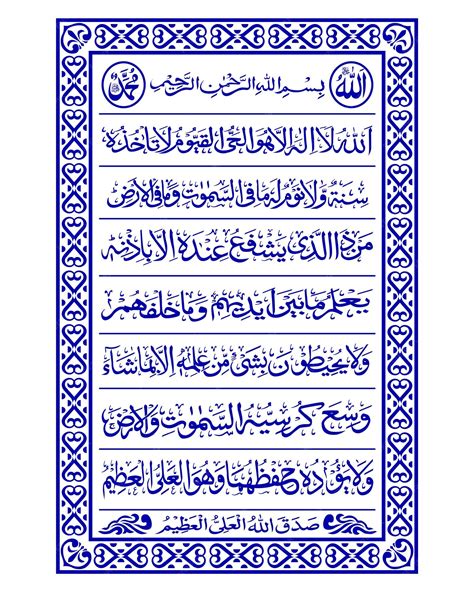 الله بِسْمِ اللهِ الرَّحْمٰنِ الرَّحِيْمِ محمد
اَللهُ لَآ اِلٰهَ اِلَّا هُوَ الْحَيُّ الْقَيُّوْمُ لَا تَأْخُذُهٗ
سِنَةٌ وَّلَا نَوْمٌ لَهٗ مَا فِى السَّمٰوٰتِ وَمَا فِى الْاَرْضِ
مَنْ ذَا الَّذِىْ يَشْفَعُ عِنْدَهٗ اِلَّا بِاِذْنِهٖ
يَعْلَمُ مَا بَيْنَ اَيْدِيْهِمْ وَمَا خَلْفَهُمْ
وَلَا يُحِيْطُوْنَ بِشَىْءٍ مِّنْ عِلْمِهٖٓ اِلَّا بِمَا شَآءَ
وَسِعَ كُرْسِيُّهُ السَّمٰوٰتِ وَالْاَرْضَ
وَلَا يَؤُدُهٗ حِفْظُهُمَا وَهُوَ الْعَلِىُّ الْعَظِيْمُ
صَدَقَ اللهُ الْعَلِىُّ الْعَظِيْمُ